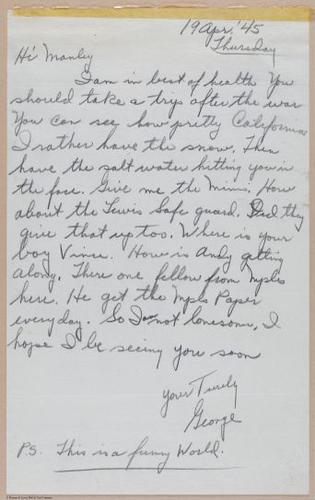 19 Apr. '45
Thursday
Hi Manley
I am in best of health You
should take a trip after the war
You can see how pretty California
I rather have the snow. Then
have the salt water hitting you in
the face. Give me the Minn. How
about the Lewis Safe guard. Did they
give that up too. Where is your
boy Vince. How is Andy getting
along. There one fellow from Mpls
here. He get the Mpls Paper
everyday. So I not lonesome, I
hope I be seeing you soon
Your Truely
George
P.S. This is a funny World.